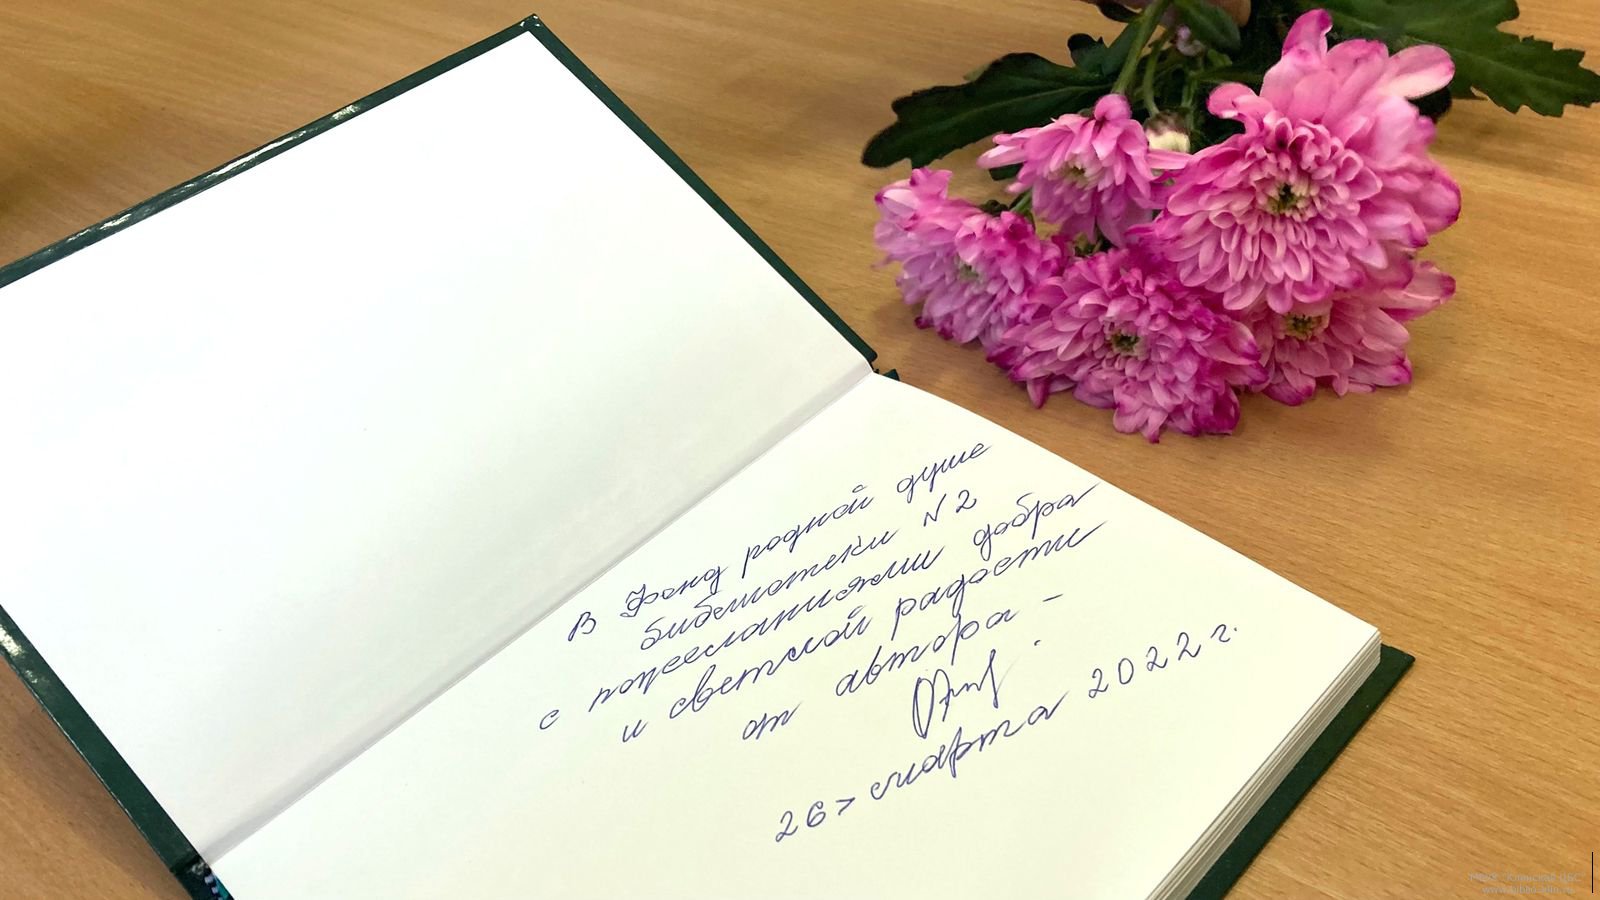 В Фонд родной душе
библиотеки N2
с пожеланиями добра
и светлой радости
от автора -
26> марта 2022 г.
МБУК "Клинская ЦБС"